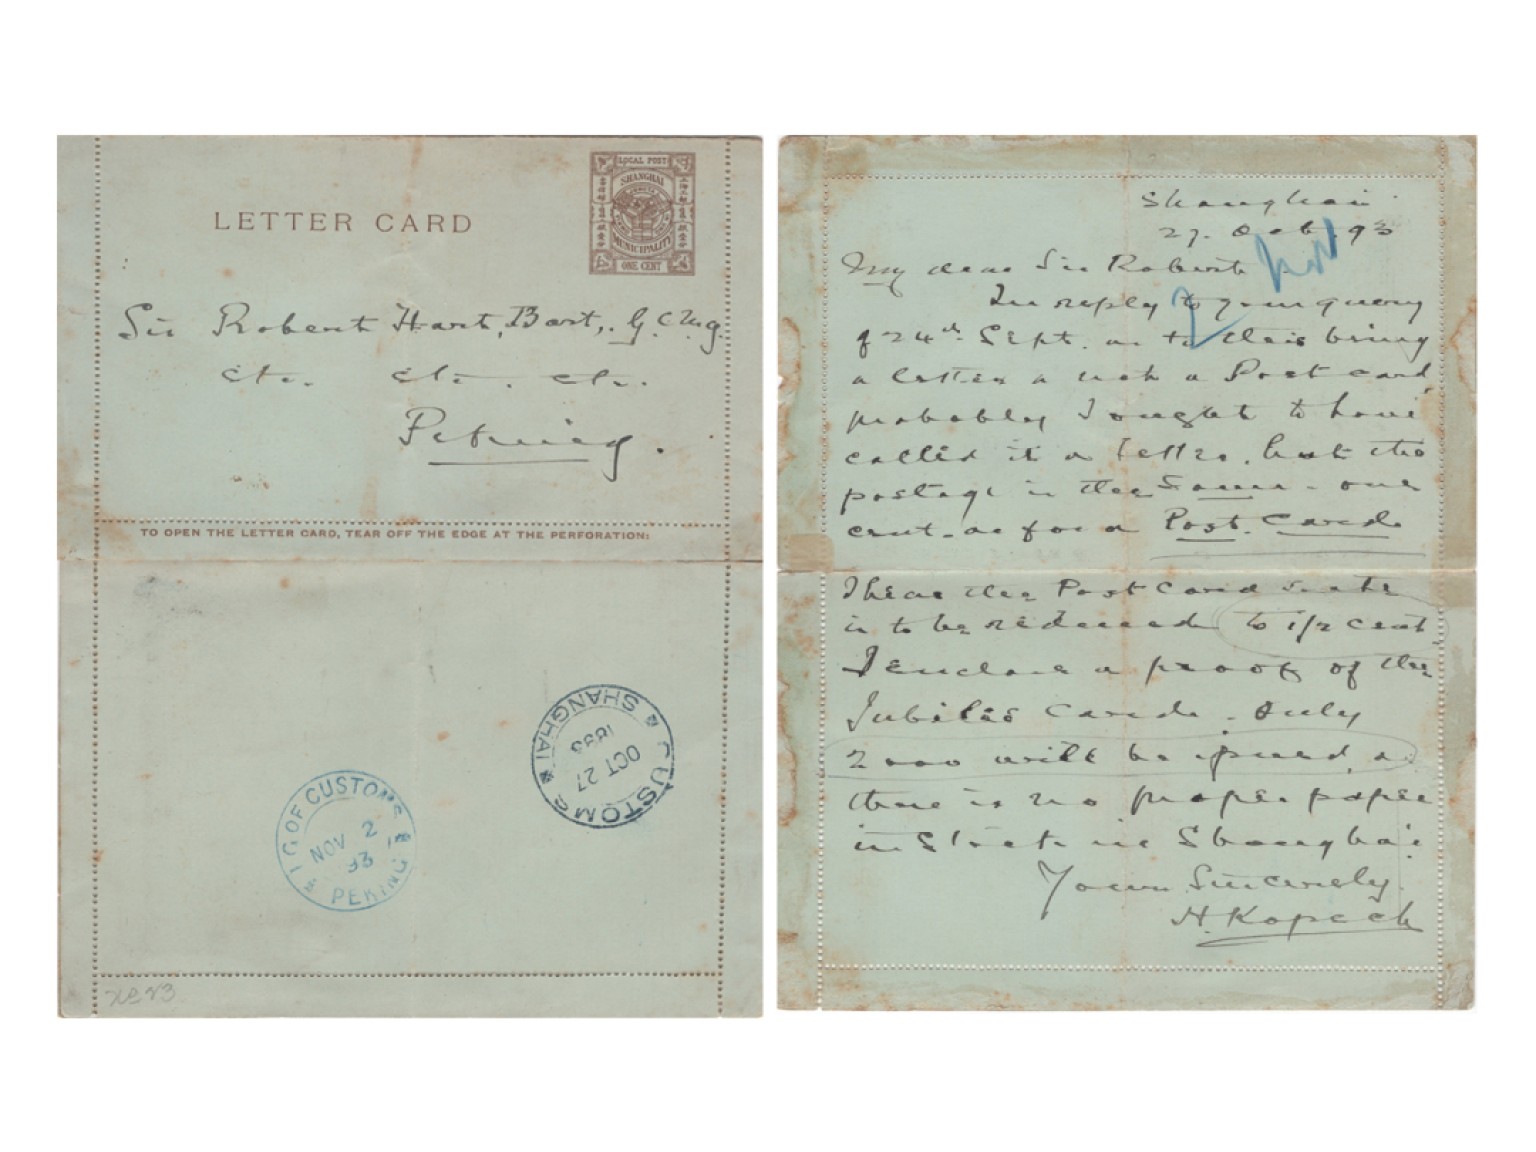 LETTER CARD
LOCAL POST
SHANGHAI
MUNICIPALITY
ONE CENT
Sir Robert Hart, Bart, G.C.M.G.
etc. etc. etc.
Peking.
TO OPEN THE LETTER CARD, TEAR OFF THE EDGE AT THE PERFORATION:
CUSTOMS
SHANGHAI
OCT 27
1893
I.G. OF CUSTOMS
NOV 2
93
PEKING
Shanghai
27. Oct. 93
My dear Sir Robert
In reply to your query
of 24th Sept. as to this being
a letter & not a Post card
probably I ought to have
called it a letter, but the
postage is the same - one
cent - as for a Post Card
I hear the Post Card rate
is to be reduced to 1/2 cent.
I enclose a proof of the
Jubilee Cards. Only
2000 will be issued, as
there is no proper paper
in Stock in Shanghai
Yours Sincerely
H. Kopsch